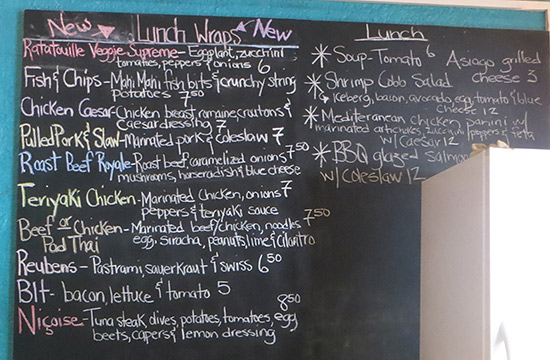 New Lunch Wraps New
Ratatouille Veggie Supreme - Eggplant, zucchini
tomatoes, peppers & onions 6
Fish & Chips - Mahi Mahi fish bits & crunchy string
potatoes 7.50
Chicken Caesar - Chicken breast, romaine, croutons &
Caesar dressing 7
Pulled Pork & Slaw - Marinated pork & coleslaw 7
Roast Beef Royale - Roast beef, caramelized onions 7.50
mushrooms, horseradish & blue cheese
Teriyaki Chicken - Marinated chicken, onions 7
peppers & teriyaki sauce
Beef or Chicken - Marinated beef/chicken, noodles 7.50
Pad Thai egg, siracha, peanuts, lime & cilantro
Reubens - Pastrami, sauerkraut & swiss 6.50
Blt - bacon, lettuce & tomato 5
Niçoise - Tuna steak, olives, potatoes, tomatoes, egg 8.50
beets, capers & lemon dressing
Lunch
Soup - Tomato 6 Asiago grilled
cheese 3
Shrimp Cobb Salad
Iceberg, bacon, avocado, egg, tomato & blue
cheese 12
Mediterranean chicken panini w/
marinated artichokes, zucchini peppers & feta
w/ caesar 12
BBQ glazed salmon
w/ coleslaw 12